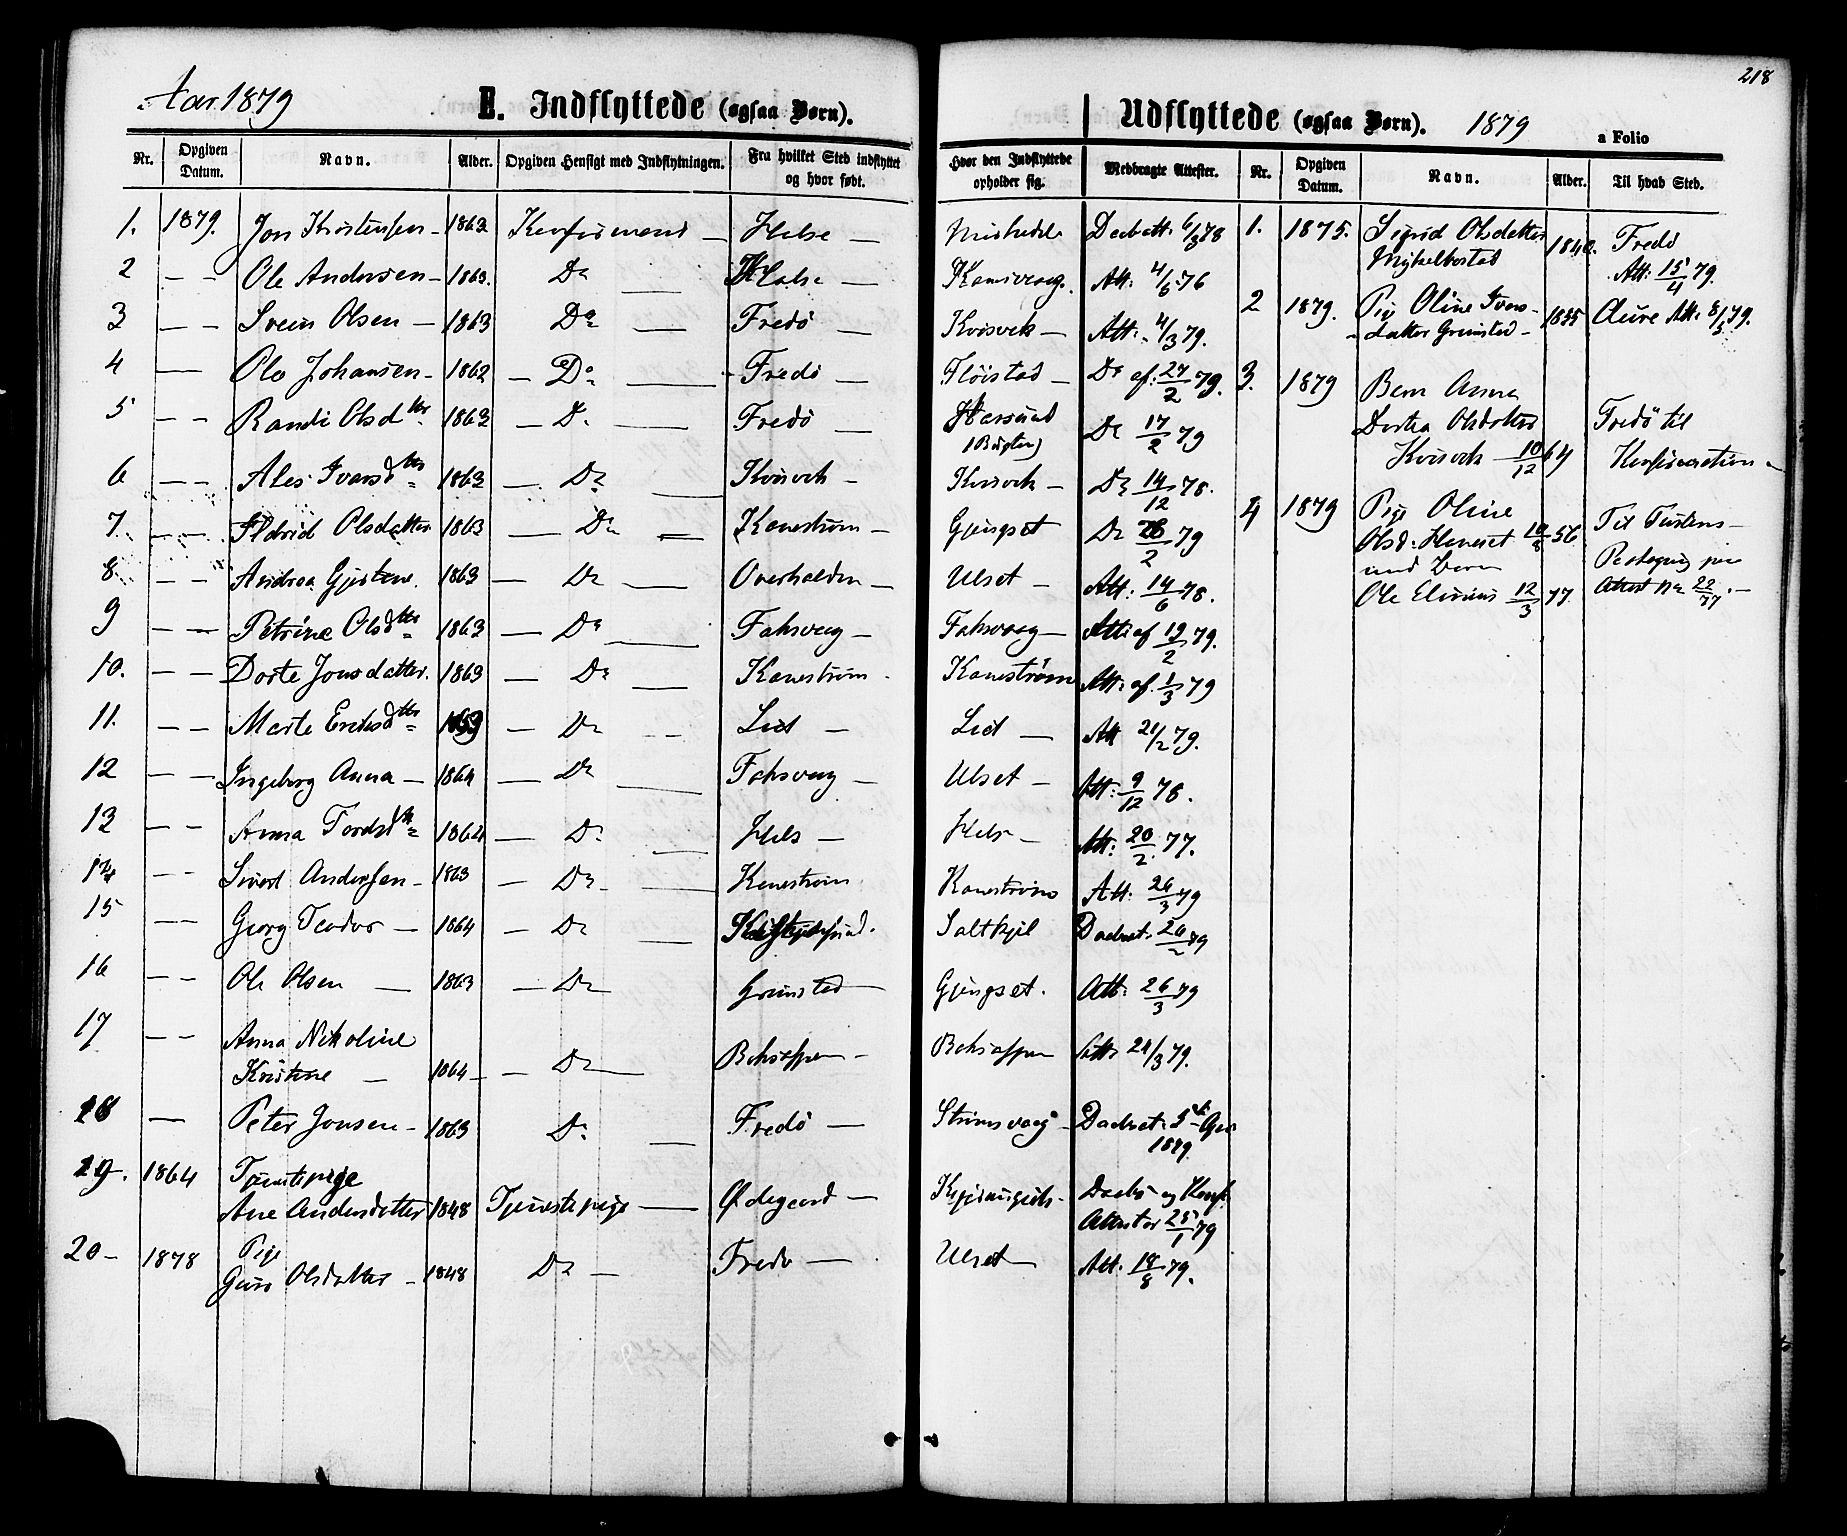 218
Aar 1879
E. Indflyttede (ogsaa Børn).
Udflyttede (ogsaa Børn). 1879
a Folio
Nr. Opgiven Datum. Navn. Alder. Opgiven Hensigt med Indflytningen. Fra hvilket Sted indflyttet og hvor født. Hvor den Indflyttede opholder sig. Medbragte Attester.
1. 1879. Jon Kristensen – 1863 Konfirmand – Halse – Daabsatt. 6/3 78
2 – – Ole Andersen – 1863. Do Halse – Att: 4/6 76
3 – – Svein Olsen – 1863 Do – Fredø – Kvisvik – Att. 4/3 79.
4 — Ole Johansen – 1862 – Do – Fredø – Fløistad – Do af: 27/2 79.
5 – – Randi Olsdtr 1863 – Do – Fredø – (Bugten) Do 17/2 79
6 – – Ales Ivarsdtr 1863 – Do – Kvisvik – Kvisvik – Do 14/12 78.
7. – – Eldrid Olsdatter 1863 – Do – Kanestrøm – Gjengset Do 28/2 79
8. – – Andrea 1863 – Do – Overhalden – Ulset – Att: 14/6 78.
9 – – Petrine Olsdtr 1863 – Do – Foksvaag – Foksvaag – Att: af 19/2 79.
10. – – Dorte Jonsdatter. 1863 – Do – Kanestrøm. Kanestrøm Att: af. 1/3 79
11. – – Marte Eriksdtr – Do – – Leed – Leed – Att 21/2 79.
12 – – Ingeborg Anna – 1864 – Do – Foksvaag – Ulset – Att: 9/12 78.
13 – – Anna Tordsdtr 1862 – Do – Hals – Hals – Att: 20/2. 77.
14 – – Sivert Andersen – 1863 – Do – Kanestrøm Kanestrøm Att: 26/3 79
15 – – Georg Teodor – 1864 – Do – Saltkjel Daabsat. 26/2 79
16 – – Ole Olsen – 1863 – Do Grimstad – Gjengset. Att: 26/3 79
17 – – Anna Nikoline
Kristine – 1864 – – Do – Att. 21/3 79.
18 — Peter Jonsen – 1863 Do – Fredø – Strømsvaag – Daabsat. 3
1879.
19. 1864 Tjenestepige
Ane Andersdatter 1848 Tjenestepige – Ødegaard – Daabs- og Konf.
Attester 25/1 79
20 – 1878 Pige
Guro Olsdatter – 1848 Do – Fredø – Ulset – Att. 18/8 79.
Nr. Opgiven Datum. Navn. Alder. Til hvad Sted.
1. 1875. Sigrid Olsdatter
Mykelbostad 1840. Fredø
Att: 15/4 79.
2 1879. Pige Oline Ivars-
datter Grimstad – 1855 Aure Att. 8/5 79.
3. 1879 Barn Anna
Dortea Olsdatter Fredø til
Kvisvik – 10/12 64 Konfirmation –
4 1879 Pige Oline
Olsd. 10/8 56 Til Tustern –
med Barn
Ole Elinius 12/3 77.